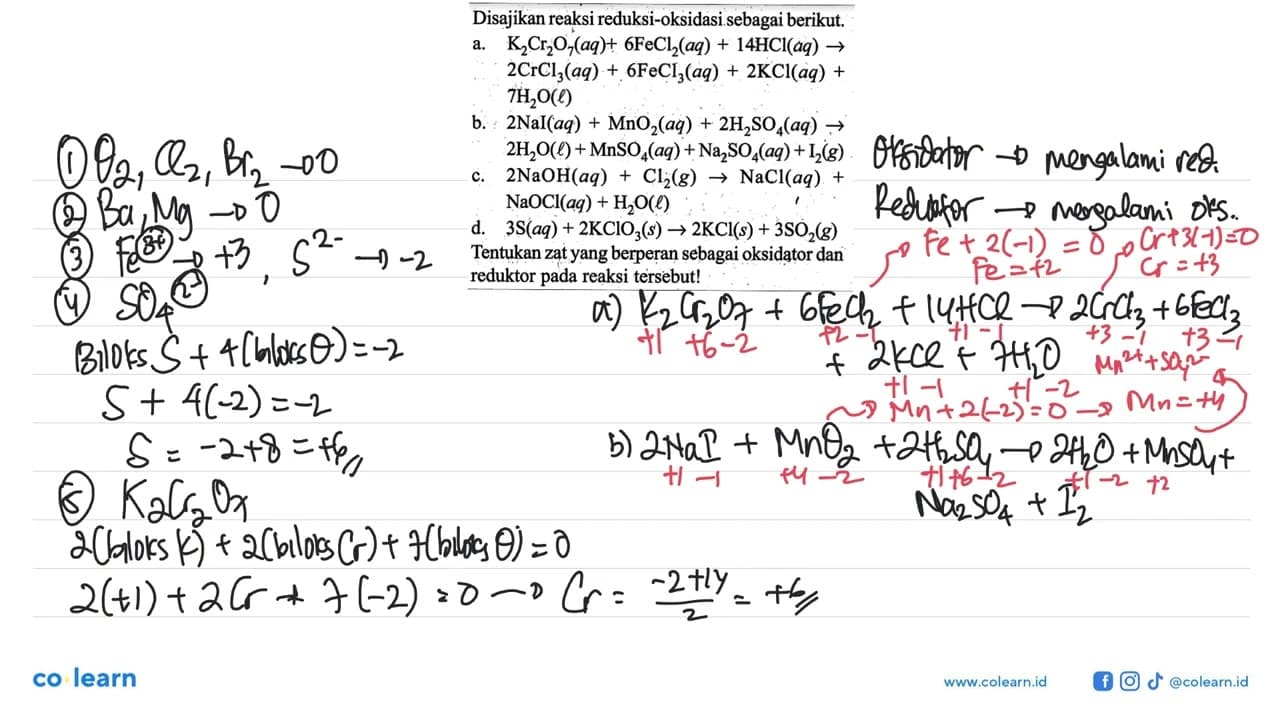 Disajikan reaksi reduksi-oksidasi sebagai berikut.
a. K₂Cr₂O₇(aq) + 6FeCl₂(aq) + 14HCl(aq) →
2CrCl₃(aq) + 6FeCl₃(aq) + 2KCl(aq) +
7H₂O(ℓ)
b. 2NaI(aq) + MnO₂(aq) + 2H₂SO₄(aq) →
2H₂O(ℓ) + MnSO₄(aq) + Na₂SO₄(aq) + I₂(g)
c. 2NaOH(aq) + Cl₂(g) → NaCl(aq) +
NaOCl(aq) + H₂O(ℓ)
d. 3S(aq) + 2KClO₃(s) → 2KCl(s) + 3SO₂(g)
Tentukan zat yang berperan sebagai oksidator dan
reduktor pada reaksi tersebut!
① O₂, Cl₂, Br₂ → 0
② Ba, Mg → 0
③ Fe³⁺ → +3, S²⁻ → -2
④ SO₄²⁻
Biloks S + 4(biloks O) = -2
S + 4(-2) = -2
S = -2+8 = +6
⑤ K₂Cr₂O₇
2(biloks K) + 2(biloks Cr) + 7(biloks O) = 0
2(+1) + 2Cr + 7(-2) = 0 → Cr = -2+14/2 = +6
Oksidator → mengalami red.
Reduktor → mengalami oks..
Fe + 2(-1) = 0
Fe = +2
Cr+3(-1)=0
Cr = +3
a) K₂Cr₂O₇ + 6FeCl₂ + 14HCl → 2CrCl₃ + 6FeCl₃
+1 +6 -2 +2 -1 +1 -1 +3 -1 +3 -1
+ 2KCl + 7H₂O
+1 -1 +1 -2
Mn²⁺ + SO₄²⁻
Mn + 2(-2) = 0 → Mn = +4
b) 2NaI + MnO₂ + 2H₂SO₄ → 2H₂O + MnSO₄ +
+1 -1 +4 -2 +1 +6 -2 +1 -2 +2
Na₂SO₄ + I₂
co·learn
www.colearn.id
@colearn.id